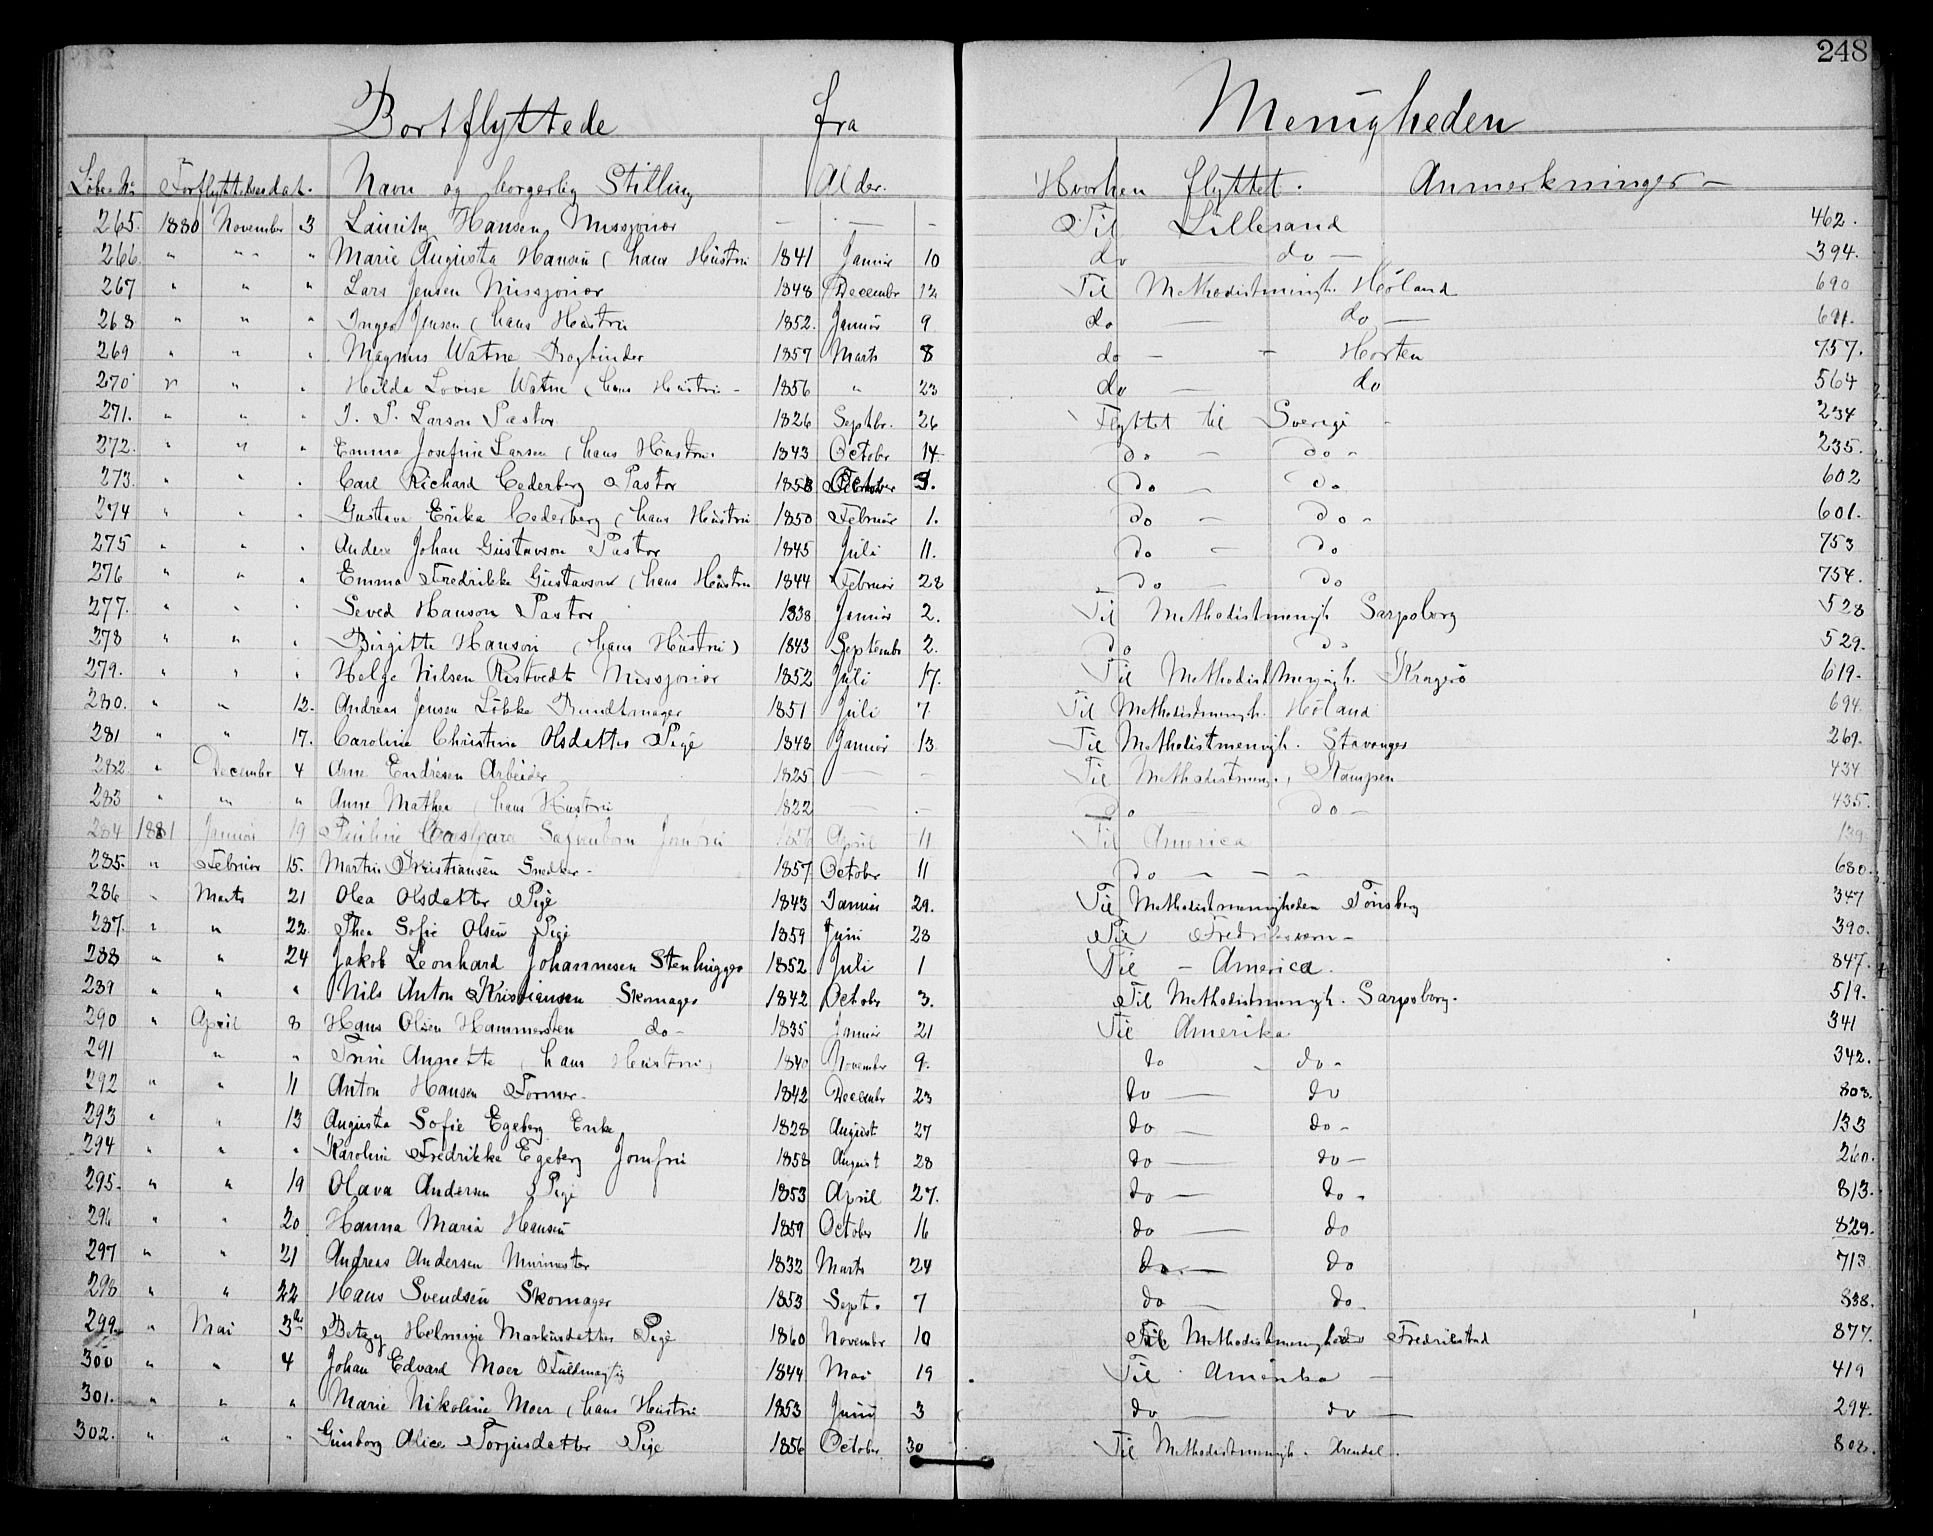 248
Bortflyttede fra Menigheden
Löbe No Forflyttelsesdat. Navn og borgerlig Stilling Alder. Hvorhen flyttet. Anmerkninger —
265. 1880 November 3 Lauritz Hansen Missjonær — — — Til Lillesand 462.
266. " " " Marie Augusta Hansen (hans Hustru 1841 Januar 10 do — do — 394.
267 " " " Lars Jensen Missjonær 1848 Decembr 12 Til Methodistmenigh. Höland 690
268 " " " Inger Jensen (hans Hustru 1852. Januar 9 do — do — 691.
269 " " " Magnus Watne Bogbinder 1857 Marts 8 do — — Horten 757.
270 " " " Hilda Lovise Watne (hans Hustru - 1856 " 23 do — do 564
271. " " " I. P. Larson Pastor 1826 Septbr. 26 Flyttet til Sverige - 234
272. " " " Emma Josefine Larsen (hans Hustru. 1843 October 14 do — do - 235.
273. " " " Carl Richard Cederberg Pastor 1853 October 3. do — do 602
274 " " " Gustava Erika Cederberg (hans Hustru 1850 Februar 1. do — do - 601.
275 " " " Anders Johan Gustavson Pastor 1845 Juli 11. do — do 753
276 " " " Emma Fredrikke Gustavson (hans Hustru 1844 Februar 28 do — do 754.
277. " " " Seved Hanson Pastor 1838 Januar 2. Til Methodistmenigh Sarpsborg 528
278 " " " Birgitte Hanson (hans Hustru) 1843 Septembr 2. do do 529.
279. " " " Helge Nilsen Ristvedt Missjonær 1852 Juli 17. Til Methodistmenigh. Kragerö 619.
280. " " 12. Andreas Jensen Lökke Bundtmager 1851 Juli 7 Til Methodistmenigh. Höland 694
281 " " 17. Caroline Christine Olsdatter Pige 1848 Januar 13 Til Methodistmenigh. Stavanger 269.
282 " December 4 Arne Endresen Arbeider 1825 — — Til Methodistmenig. 434
283 " " " Anne Mathea (hans Hustru 1822 — — do do — 435.
284 1881 Januar 19 Pauline Jomfru April 11 Til America 139
285. " Februar 15. Martin Kristiansen Snedker - 1857 October 11 do - - - 680.
286 " Marts 21 Olea Olsdatter Pige 1843 Januar 29. Til Methodistmenigheden Tönsberg 347
287. " " 22. Thea Sofie Olsen Pige 1859 Juni 28 Til Fredriksværn — 390.
288 " " 24 Jakob Leonhard Johannesen Stenhugger 1852 Juli 1 Til — America. 847.
289 " " " Nils Anton Kristiansen Skomager 1842 October 3. Til Methodistmenigh. Sarpsborg. 519.
290 " April 8 Hans Olsen Hammersten do - 1835 Januar 21 Til Amerika 341
291 " " Trine Annette (hans Hustru) 1840 November 9. do - do - 342.
292 " " 11 Anton Hansen Former - 1842 Decembr 23 do — do 803.
293 " " 13 Augusta Sofie Egeberg Enke 1828 August 27 do — do - 133
294 " " " Karoline Fredrikke Egeberg Jomfru 1858 August 28 do — do — 260.
295. " " 19 Olava Andersen Pige 1853 April 27. do — do - 813.
296 " " 20 Hanna Maria Hansen 1859 October 16 do — do 829.
297 " " 21 Andreas Andersen Murmester 1832 Marts 24 do. — do 713
298 " " 22 Hans Svendsen Skomager 1853 Sept. 7 do — do - 838.
299 " Mai 3die Betzy Helmine Markusdatter Pige 1860 November 10 Til Methodistmenigheden Fredrikstad 877.
300 " " 4 Johan Edvard Moer Fuldmægtig 1844 Mai 19 Til Amerika — 419
301. " " " Marie Nikoline Moer (hans Hustru 1853 Juni 3 do — do — 294.
302. " " " Gunborg Alice Torjusdatter Pige 1856 October 30 Til Methodistmenigh. Arendal. 802.